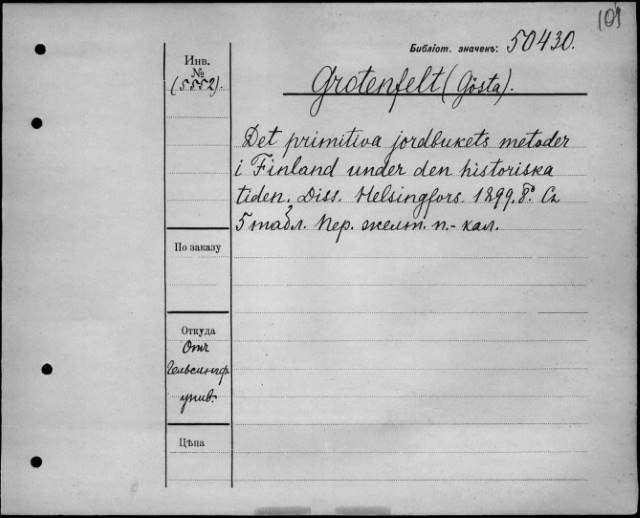 101
Библіот. значекъ: 50430.
Инв.
№
(5552).
Grotenfelt (Gösta).
Det primitiva jordbukets metoder
i Finland under den historiska
tiden. Diss. Helsingfors. 1899. 8° Съ
5 табл. Пер. желт. п.- кал.
По заказу
Откуда
Отъ
Гельсингф.
унив.
Цѣна